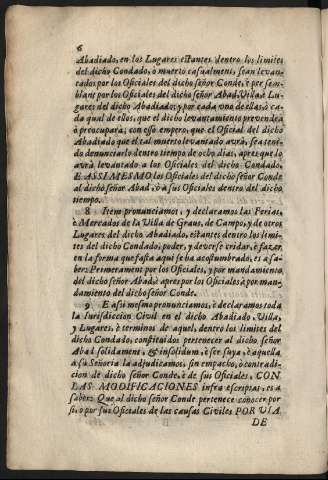 6
Abadiado, en los Lugares estantes dentro los limites
del dicho Condado, o muerto casualment, sean levan-
tados por los Oficiales del dicho señor Conde, è per sem-
blant por los Oficiales del dicho señor Abad, Villa, è Lu-
gares del dicho Abadiado; y por cada uno de ellos, ò ca-
da qual de ellos, que el dicho levantamiento prevendrà
è preocuparà; con esso empero, que el Oficial del dicho
Abadiado que el tal muerto levantado avrà, sea teni-
do denunciarlo dentro tiempo de ocho dias, apres que lo
avrà levantado a los Oficiales del dicho Condado,
E ASSIMESMO los Oficiales del dicho señor Conde
al dicho señor Abad, ò a sus Oficiales dentro del dicho
tiempo.
8 Item pronunciamos, y declaramos las Ferias,
è Mercados de la Villa de Graus, de Campo, y de otros
Lugares del dicho Abadiado, estantes dentro los limi-
tes del dicho Condado, poder, y deverse vidar, è fazer,
en la forma que fasta aqui se ha acostumbrado, es a sa-
ber: Permerament por los Oficiales, y por mandamiento
del dicho señor Abad, è apres por los Oficiales, è por man-
damiento del dicho señor Conde.
9 E assi mesmo pronunciamos, è declaramos toda
la Iurisdiccion Civil en el dicho Abadiado, Villa,
y Lugares, è terminos de aquel, dentro los limites del
dicho Condado, constituidos pertenecer al dicho señor
Abad solidament, & insolidum, è ser suya, è aquella
à su Señoria la adjudicamos, sin empacho, ò contradi-
cion de dicho señor Conde, è de sus Oficiales, CON
LAS MODIFICACIONES infra escriptas, es a
saber: Que al dicho señor Conde pertenece conocer por
si, o por sus Oficiales de las causas Civiles POR VIA
DE